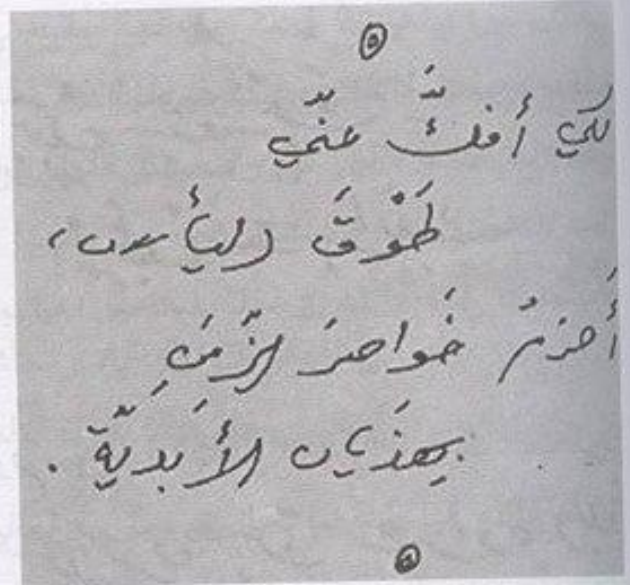 لكي أفكَّ عنّي
طَوْقَ اليأس،
أَحزمُ خَواصرَ الزّمَنِ
بِهذَيان الأَبَديّة.